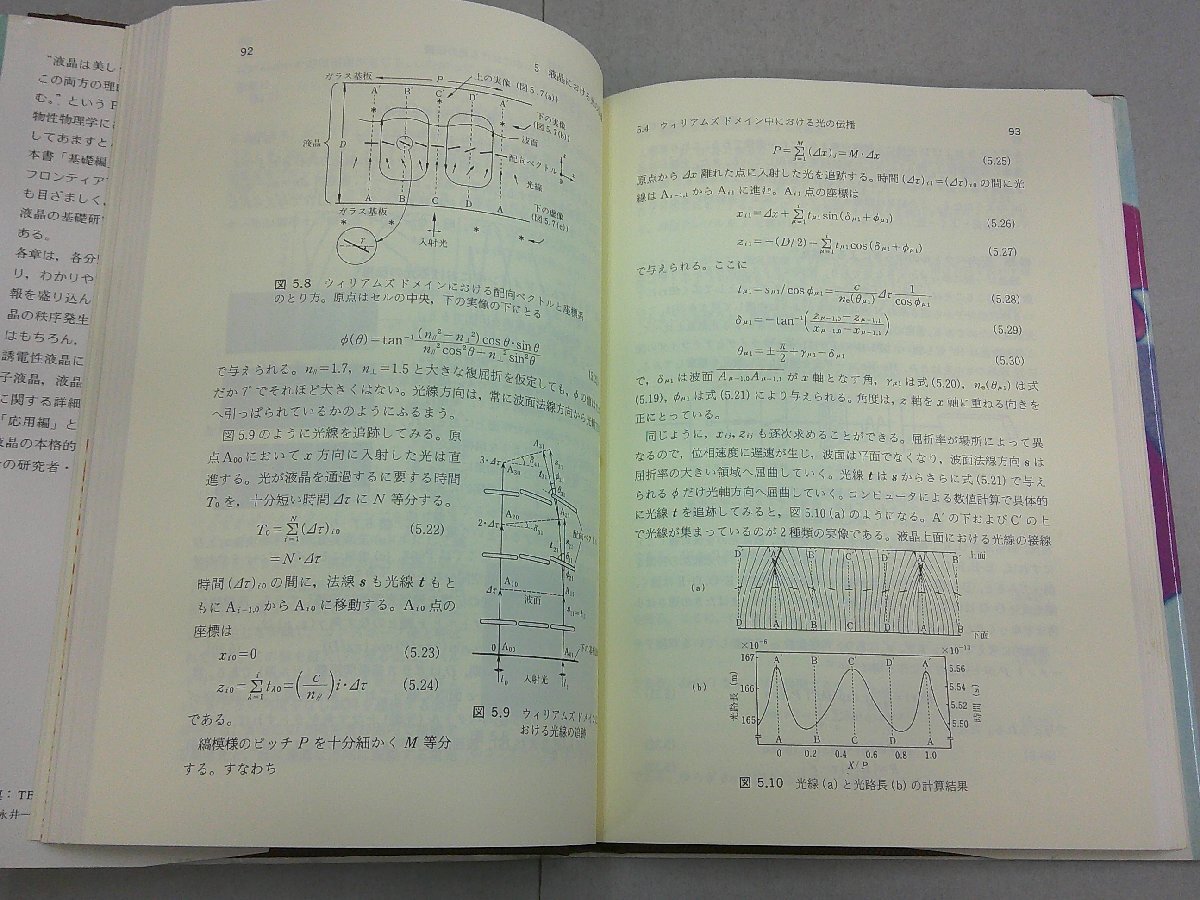 "液晶は美し
この両方の理
む。"という
物性物理学に
してあますと
本書「基礎編」
フロンティア
も目ざましく,
液晶の基礎研
ある。
各章は, 各分
り, わかりや
報を盛り込ん
晶の秩序発生
はもちろん,
誘電性液晶に
子液晶, 液晶
に関する詳細
「応用編」と
液晶の本格的
の研究者・
永井一
92
ガラス基板
P
上の実像 (図5.7(a))
A' B' C' D' A'
下の実像
(図5.7(b))
波面
液晶 D
配向ベクトル
光線
下の虚像
(図5.7(c))
ガラス基板
A B C D A
入射光
図 5.8 ウィリアムズドメインにおける配向ベクトルと座標系
のとり方。原点はセルの中央, 下の実像の下にとる
φ(θ)=tan⁻¹ (n∥²−n⊥²)cosθ·sinθ / n∥²cos²θ+n⊥²sin²θ
で与えられる。n∥=1.7, n⊥=1.5 と大きな複屈折を仮定しても, φの値は
だか7°でそれほど大きくはない。光線方向は, 常に波面法線方向から
へ引っぱられているかのようにふるまう。
図5.9のように光線を追跡してみる。原
点A₀₀においてx方向に入射した光は直
進する。光が液晶を通過するに要する時間
T₀を, 十分短い時間ΔτにN等分する。
=N·Δτ (5.22)
時間(Δτ)ᵢ₀の間に, 法線sも光線tもと
もにAᵢ₋₁,₀からAᵢ₀に移動する。Aᵢ₀点の
座標は
xᵢ₀=0 (5.23)
zᵢ₀=Σtλ₀=(c/n∥)i·Δτ (5.24)
である。
縞模様のピッチPを十分細かくM等分
する。すなわち
3·Δτ
2·Δτ
Δτ
波面
入射光
図 5.9 ウィリアムズドメインに
おける光線の追跡
5.4 ウィリアムズドメイン中における光の伝播 93
P=Σ(Δx)ⱼ=M·Δx (5.25)
原点からΔx離れた点に入射した光を追跡する。時間(Δτ)ᵢ₁=(Δτ)ᵢ₀の間に光
線はAᵢ₋₁,₁からAᵢ₁に進む。Aᵢ₁点の座標は
xᵢ₁=Δx+Σtμ₁sin(δμ₁+φμ₁) (5.26)
zᵢ₁=−(D/2)−Σtμ₁cos(δμ₁+φμ₁) (5.27)
で与えられる。ここに
tμ₁=sμ₁/cosφμ₁=c/nₑ(θμ₁) Δτ 1/cosφμ₁ (5.28)
δμ₁=−tan⁻¹(zμ₋₁,₀−zμ₋₁,₁ / xμ₋₁,₀−xμ₋₁,₁) (5.29)
θμ₁=±π/2+γμ₁−δμ₁ (5.30)
で, δμ₁は波面Aμ₋₁,₀Aμ₋₁,₁がx軸となす角, γμ₁は式(5.20), nₑ(θμ₁)は式
(5.19), φμ₁は式(5.21)により与えられる。角度は, z軸をx軸に重ねる向きを
正にとっている。
同じように, xᵢⱼ, zᵢⱼも逐次求めることができる。屈折率が場所によって異
なるので, 位相速度に遅速が生じ, 波面は平面でなくなり, 波面法線方向sは
屈折率の大きい領域へ屈曲していく。光線tはsからさらに式(5.21)で与え
られるφだけ光軸方向へ屈曲していく。コンピュータによる数値計算で具体的
に光線tを追跡してみると, 図5.10(a)のようになる。A'の下およびC'の上
で光線が集まっているのが2種類の実像である。液晶上面における光線の接線
(a)
上面
D A B C D A B
下面
(b)
×10⁻⁶ ×10⁻¹³
167
166
165
光路長 (m)
A' B' C' D' A'
A B C D A
5.56
5.54
5.52
5.50
時間 (s)
0 0.2 0.4 0.6 0.8 1.0
X/P
図 5.10 光線(a)と光路長(b)の計算結果